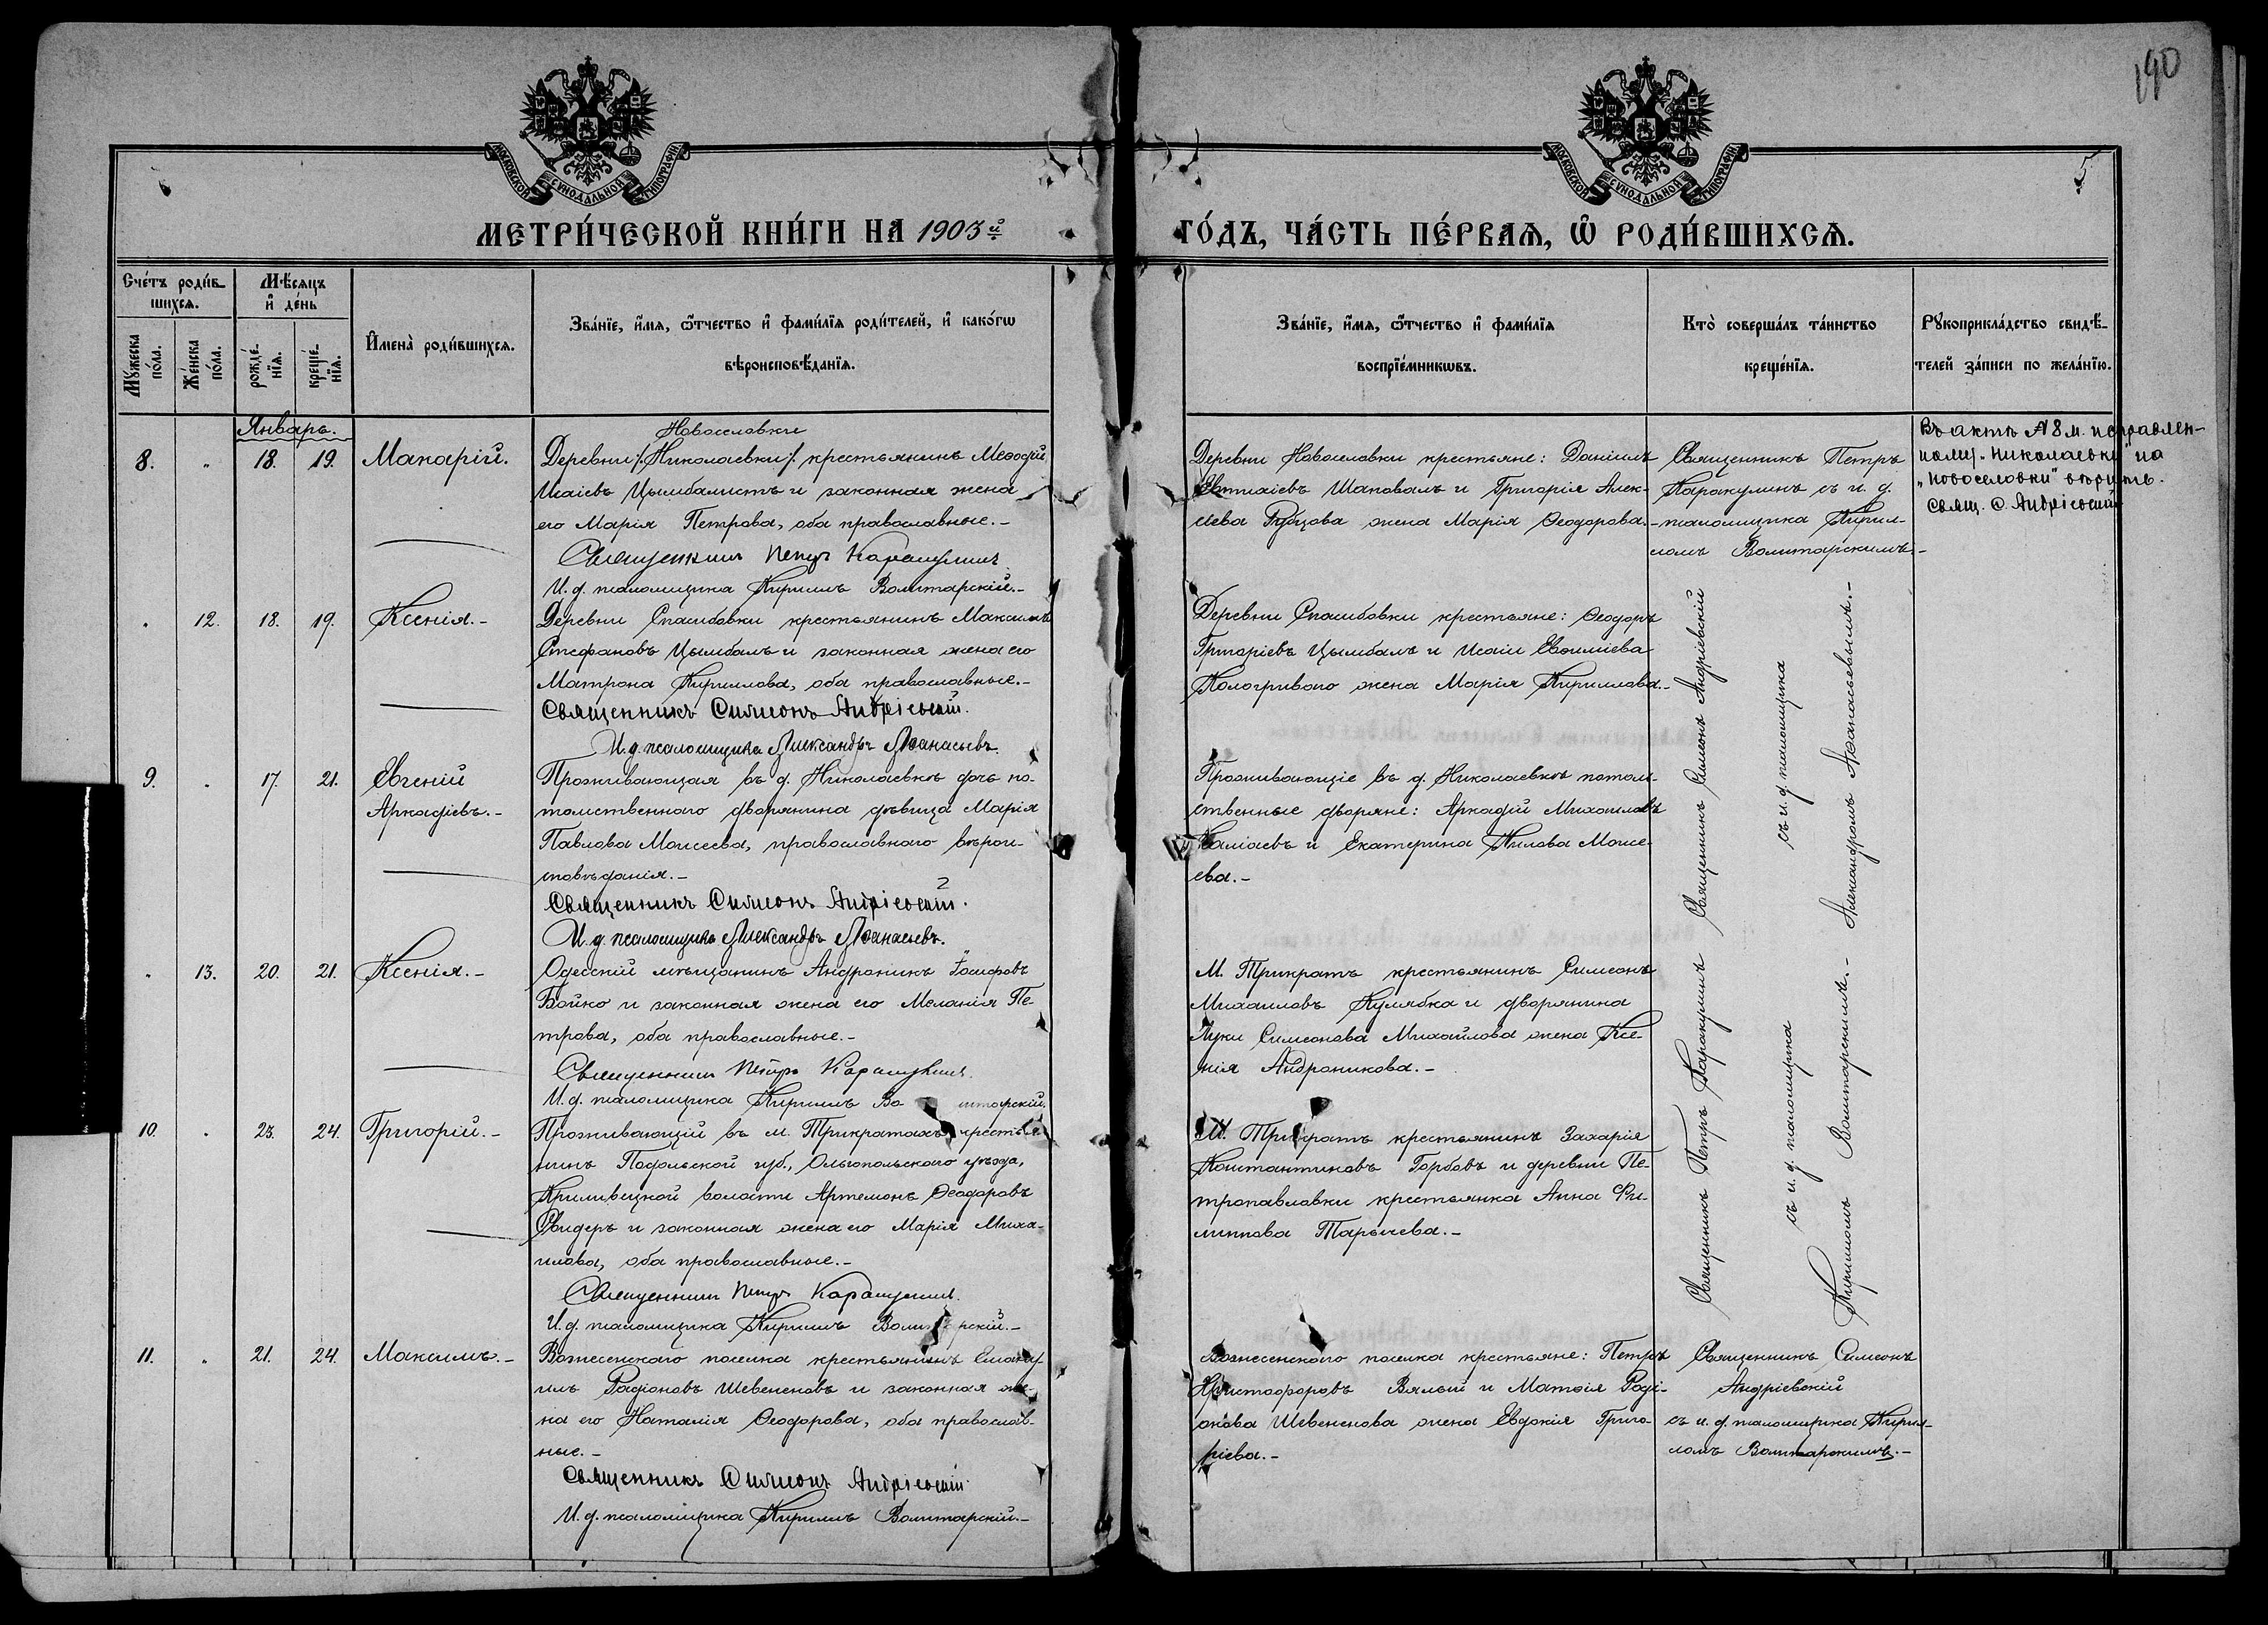 190
5
МОСКОВСКОЙ СУНОДАЛЬНОЙ ТИПОГРАФІИ
МОСКОВСКОЙ СУНОДАЛЬНОЙ ТИПОГРАФІИ
МЕТРИ́ЧЕСКОЙ КНИ́ГИ НА 1903й
ГО́ДЪ, ЧА́СТЬ ПЕ́РВАѦ, Ѡ РОДИ́ВШИХСѦ.
Сче́тъ роди́в-
шихсѧ.
Мѣ́сѧцъ
и де́нь
Мꙋжеска по́ла.
Же́нска по́ла.
рожде́-
нїѧ.
креще́-
нїѧ.
Имена̀ роди́вшихсѧ.
Зва́нїе, и́мѧ, ѻ́тчество и фами́лїѧ роди́телей, и како́гѡ
вѣроисповѣ́данїѧ.
Зва́нїе, и́мѧ, ѻ́тчество и фами́лїѧ
воспрїе́мникѡвъ.
Кто̀ соверша́лъ та́инство
креще́нїѧ.
Рꙋкоприкла́дство свидѣ́-
телей за́писи по жела́нїю.
Январь.
8. " 18. 19. Макарій.
Новоселовки
Деревни /.Николаевки/. крестьянинъ Меѳодій
Исаіевъ Цымбалистъ и законная жена
его Марія Петрова, оба православные.-
Священникъ Петръ Каракулинъ
И. д. псаломщика Кириллъ Волитарскій.-
Деревни Новоселовки крестьяне: Даніилъ
Евтихіевъ Шаповалъ и Григорія Алек-
сіева Рубцова жена Марія Ѳеодорова.-
Священникъ Петръ
Каракулинъ съ и. д.
псаломщика Кирил-
ломъ Волитарскимъ.-
Въ актѣ № 8 м. исправлен-
ному „Николаевки" на
„Новоселовки" вѣрить.
Свящ. С. Андріевскій
" 12. 18. 19. Ксенія.-
Деревни Спасибовки крестьянинъ Максимъ
Стефановъ Цымбалъ и законная жена его
Матрона Кириллова, оба православные.-
Священникъ Симеонъ Андріевскій.
И. д. псаломщика Александръ Аѳанасьевъ.
Деревни Спасибовки крестьяне: Ѳеодоръ
Григоріевъ Цымбалъ и Исаіи Евѳиміева
Кологриваго жена Марія Кириллова.-
Священникъ Симеонъ Андріевскій
съ и. д. псаломщика
Александромъ Аѳанасьевымъ.-
9. " 17. 21. Евгеній
Аркадіевъ.-
Проживающая въ д. Николаевкѣ дочь по-
томственнаго дворянина дѣвица Марія
Павлова Моисеева, православнаго вѣрои-
сповѣданія.-
Священникъ Симеонъ Андріевскій.
И. д. псаломщика Александръ Аѳанасьевъ.
Проживающіе въ д. Николаевкѣ потом-
ственные дворяне: Аркадій Михаиловъ
и Екатерина Моисе-
ева.-
" 13. 20. 21. Ксенія.-
Одесскій мѣщанинъ Андроникъ Іосифовъ
Бойко и законная жена его Меланія Пе-
трова, оба православные.-
Священникъ Петръ Каракулинъ.
И. д. псаломщика Кириллъ Волитарскій.
М. Трикратъ крестьянинъ Симеонъ
Михаиловъ Кулябка и дворянина
Луки Симеонова Михайлова жена Ксе-
нія Андроникова.-
Священникъ Петръ Каракулинъ
съ и. д. псаломщика
Кирилломъ Волитарскимъ.-
10. " 23. 24. Григорій.-
Проживающій въ м. Трикратахъ крестья-
нинъ Подольской губ., Ольгопольскаго уѣзда,
волости Артемонъ Ѳеодоровъ
Свидеръ и законная жена его Марія Миха-
илова, оба православные.-
Священникъ Петръ Каракулинъ.
И. д. псаломщика Кириллъ Волитарскій.-
М. Трикратъ крестьянинъ Захарія
Константиновъ Горбовъ и деревни Пе-
тропавловки крестьянка Анна Фи-
липпова Тарычева.-
11. " 21. 24. Максимъ.-
Вознесенскаго поселка крестьянинъ
Родіоновъ Шевененовъ и законная же-
на его Наталія Ѳеодорова, оба православ-
ные.-
Священникъ Симеонъ Андріевскій.
И. д. псаломщика Кириллъ Волитарскій.-
Вознесенскаго поселка крестьяне: Петръ
Христофоровъ Вялый и Матѳія Роді-
онова Шевененова жена Евдокія Григо-
ріева.-
Священникъ Симеонъ
Андріевскій
съ и. д. псаломщика Кирил-
ломъ Волитарскимъ.-